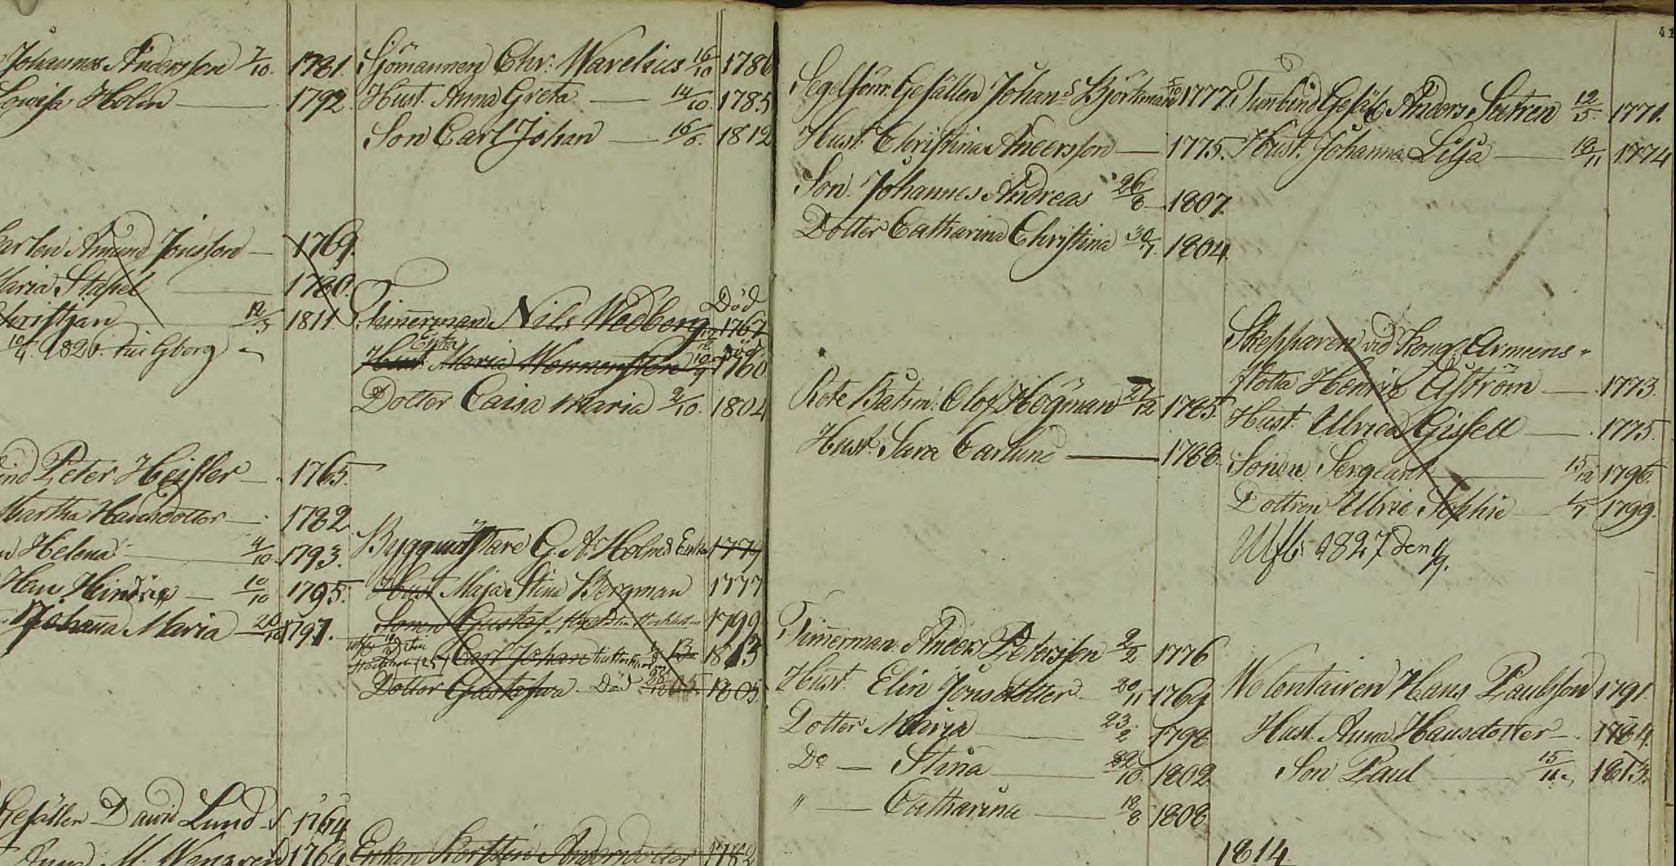 Johannes Andersson 7/10 1781.
Lovisa Holm 1792
Amund Jonsson 1769.
Maria Stahel 1780.
Christjan 12/5 1811
1820. till Gborg
Peter Heisler 1765
Martha Hansdotter 1782
Helena 4/10 1793.
Hindric 10/10 1795.
Johana Maria 1797.
Gesällen David Lund 1764
Anna M. Wengren 1764
Sjömannen Chr. Warelius 16/10 1786
Hust. Anna Greta 14/10 1785
Son Carl Johan 16/6. 1812
Död
Timerman Nils Wadborg 1767
Enka Död
Hust Maria 1760
Dotter Caisa Maria 2/10. 1804
Byggmästare G. A. Holms Enka 1779
Hust Maja Stina Bergman 1777
Sonen Gustaf 1799
Carl Johan 1813
Dotter Gustafva Död 1805.
Enkan Kerstin Andersdotter 1782
Segelsöm: Gesällen Johans Björkman 1777.
Hust. Christina Andersson 1775.
Son. Johannes Andreas 26/8 1807.
Dotter Catharina Christina 30/7. 1804.
Rote Båtsm: Olof Högman 27/12 1785.
Hust. Sara Carlund 1788.
Timerman Anders Peterssen 2/2 1776
Hust. Elin Jonsdotter 20/11 1769
Dotter Maria 23/2 1798
Do Stina 22/10 1802
" Catharina 18/8 1808
Tunbind Gesäl Anders Sutren 12/5 1771.
Hust. Johanna Lilja 12/11 1774
Skepparen vid Kong. Armens
flotta Henric Åström 1773.
Hust. Ulrica Gisell 1775.
Sonen Sergeant 15/12 1796.
Dottren Ulric Sophie 1/7 1799.
Utfl. 1827 den
Volentairen Hans Paulsson 1791.
Hust. Anna Hansdotter 1784.
Son Paul 15/11 1813.
1814.